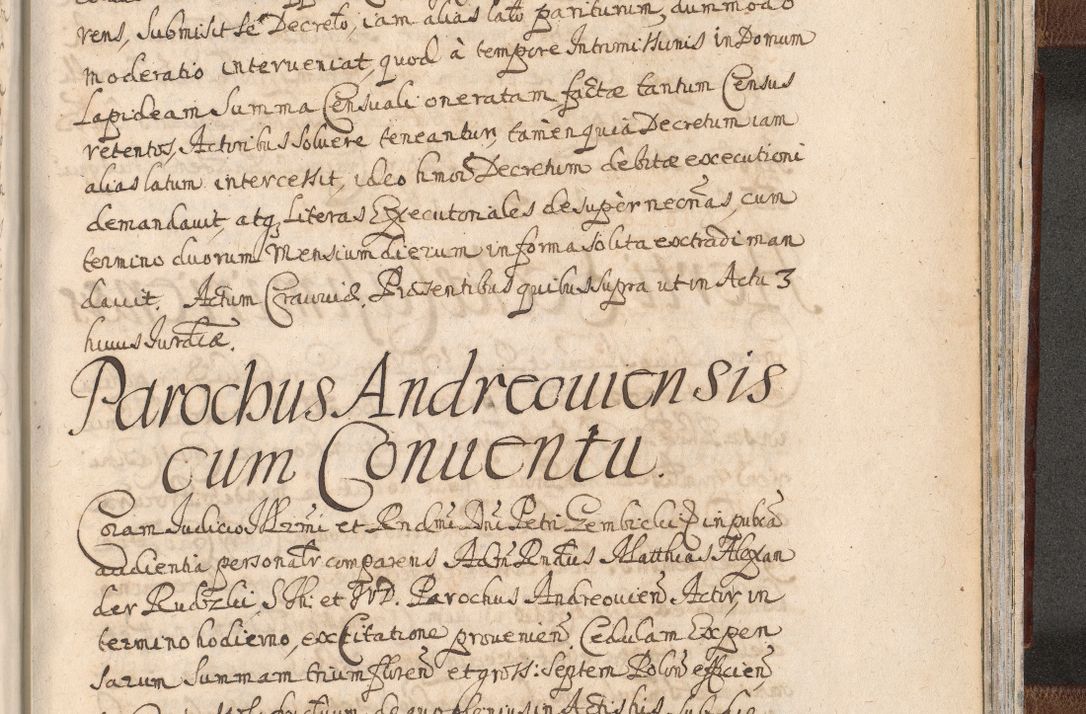 rens, submisit se Decreto, iam alias lato pariturum, dummodo
moderatio interueniat, quod à tempore Intromissionis in Domum
Lapideam Summa Censuali oneratam factæ tantum Census
retentos, Actoribus soluere teneantur, tamen quia Decretum iam
alias latum intercessit, ideo hmoi Decretum debitæ executioni
demandauit, atq₃ Literas Executoriales desupèr necñas, cum
termino duorum Mensium dierum in forma solita extradi man
dauit. Actum Cracouiæ. Præsentibus quibus supra ut in Actu 3
huius Jurdicæ.
Parochus Andreouiensis
cum Conuentu.
Coram Judicio Illrmi et Rndmi Dni Petri Gembicki P in pubca
audientia personalr comparens Adm Rndus Matthias Alexan
der Rudzki, S. Th: et JVD. Parochus Andreouień Actor, in
termino hodierno, ex Citatione prouenień. Cedulam Expen
sarum Summam trium floren et gross: septem Polon efficień